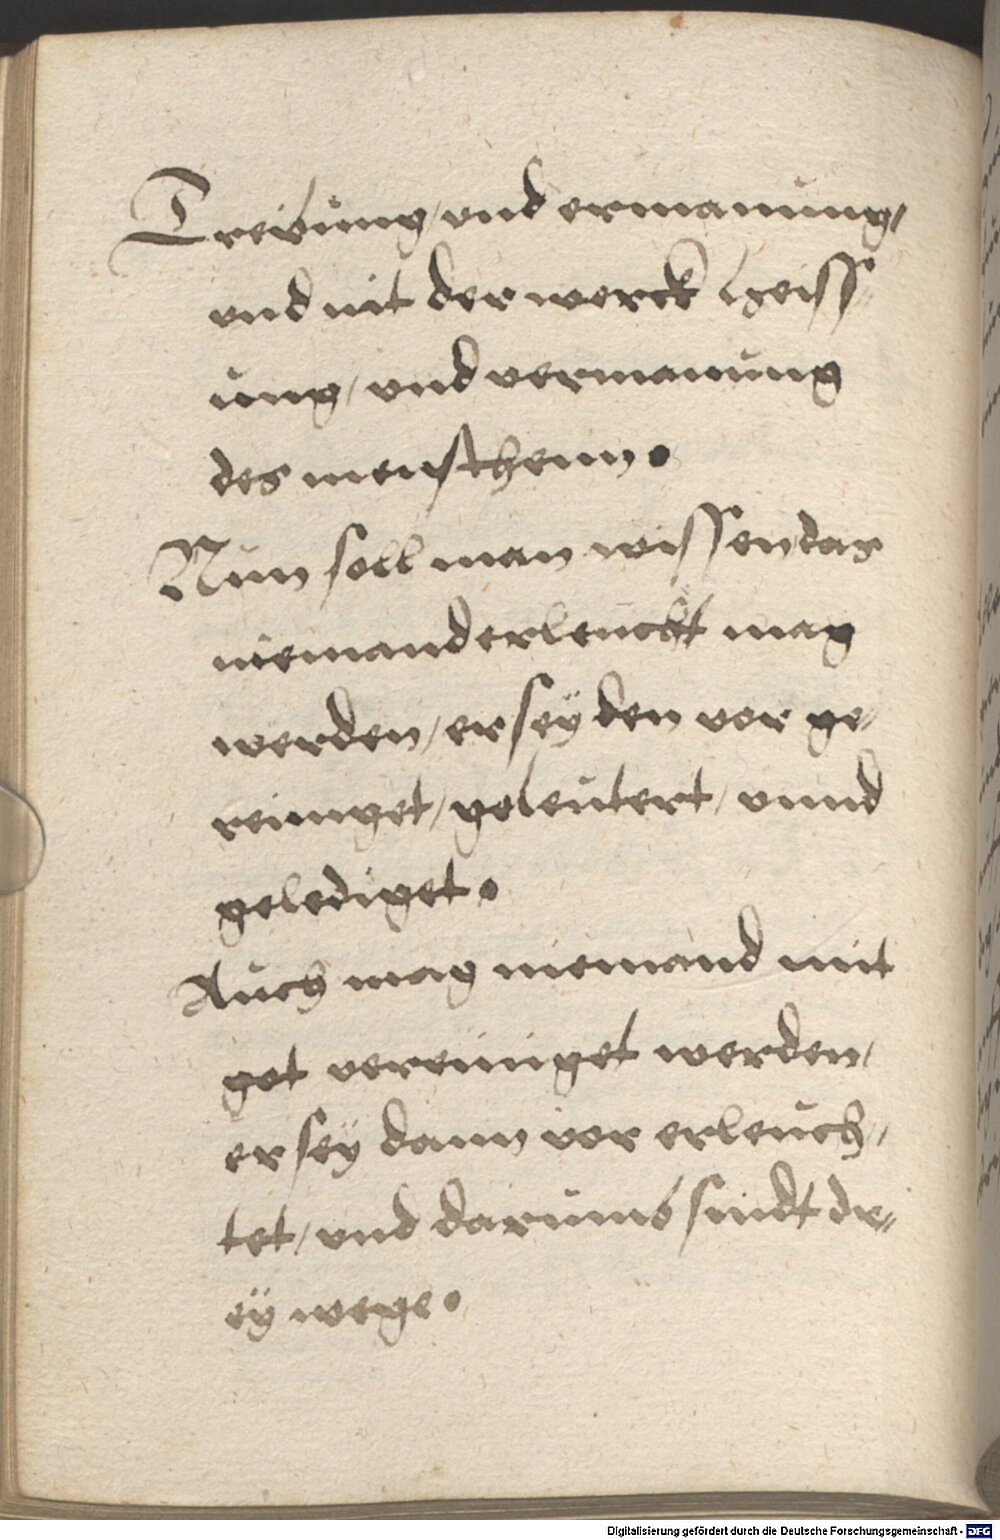 Treibung / vnd ermanung /
vnd nit der werck heiss⸗
ung / vnd vermanung
des menschenn •
Nun soll man wissen das
niemand erleucht mag
werden / er sey den vor ge⸗
reiniget / geleutert / vnnd
gelediget •
Auch mag niemand mit
got vereiniget werden /
er sey dann vor erleuch⸗
tet / vnd darumb sindt dr⸗
ey wege •
Digitalisierung gefördert durch die Deutsche Forschungsgemeinschaft - DFG